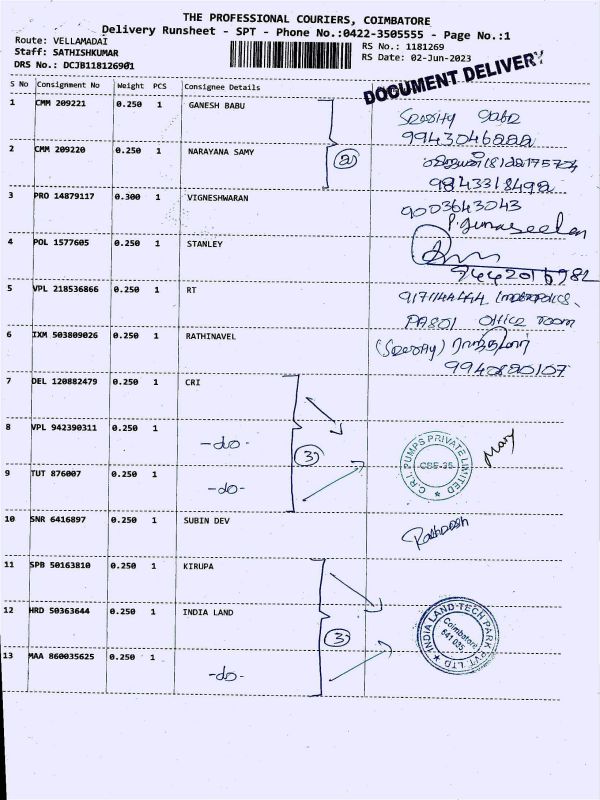 THE PROFESSIONAL COURIERS, COIMBATORE
Delivery Runsheet - SPT - Phone No.:0422-3505555 - Page No.:1
Route: VELLAMADAI
Staff: SATHISHKUMAR
DRS No.: DCJB118126901
RS No.: 1181269
RS Date: 02-Jun-2023
DOCUMENT DELIVERY
S No Consignment No Weight PCS Consignee Details
1 CMM 209221 0.250 1 GANESH BABU
9943046222
2 CMM 209220 0.250 1 NARAYANA SAMY
(2)
9843318492
3 PRO 14879117 0.300 1 VIGNESHWARAN
9003643043
P. Gunaseelan
4 POL 1577605 0.250 1 STANLEY
9442016982
5 VPL 218536866 0.250 1 RT
PA801 Office room
6 IXM 503809026 0.250 1 RATHINAVEL
9940820107
7 DEL 120882479 0.250 1 CRI
8 VPL 942390311 0.250 1 -do-
(3)
C.R.I. PUMPS PRIVATE LIMITED
CBE-35
Mary
9 TUT 876007 0.250 1 -do-
10 SNR 6416897 0.250 1 SUBIN DEV
11 SPB 50163810 0.250 1 KIRUPA
12 HRD 50363644 0.250 1 INDIA LAND
(3)
INDIA LAND-TECH PARK PVT LTD
Coimbatore
641 035
13 MAA 860035625 0.250 1 -do-